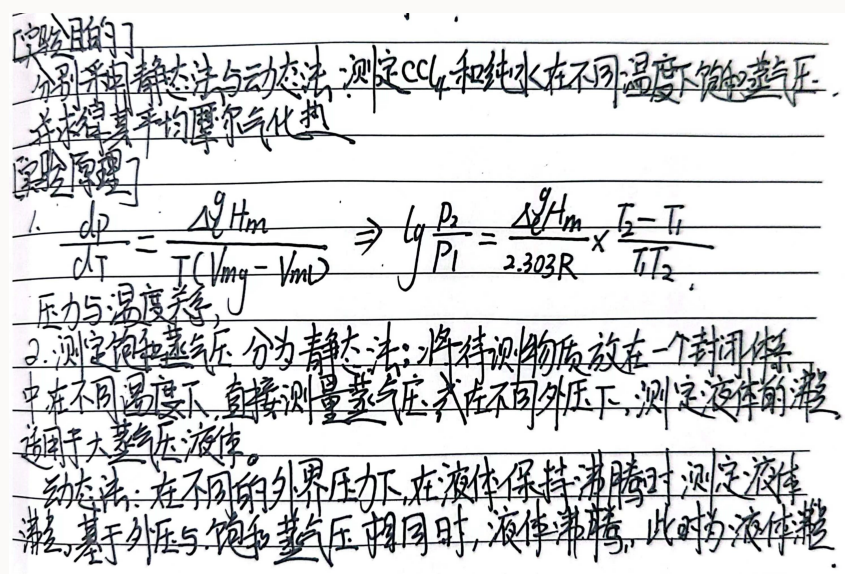 [实验目的]
分别采用静态法与动态法,测定CCl₄和纯水在不同温度下饱和蒸气压.
并求得其平均摩尔气化热
[实验原理]
1. dp/dT = Δ_l^g Hm / T(Vmg - Vml) ⇒ lg P₂/P₁ = Δ_l^g Hm / 2.303R × T₂-T₁ / T₁T₂.
压力与温度关系,
2.测定饱和蒸气压分为静态法:将待测物质放在一个封闭体系
中在不同温度下,直接测量蒸气压或在不同外压下,测定液体的沸点
适用于大蒸气压液体。
动态法:在不同的外界压力下,在液体保持沸腾时测定液体
沸点,基于外压与饱和蒸气压相同时,液体沸腾,此时为液体沸点.